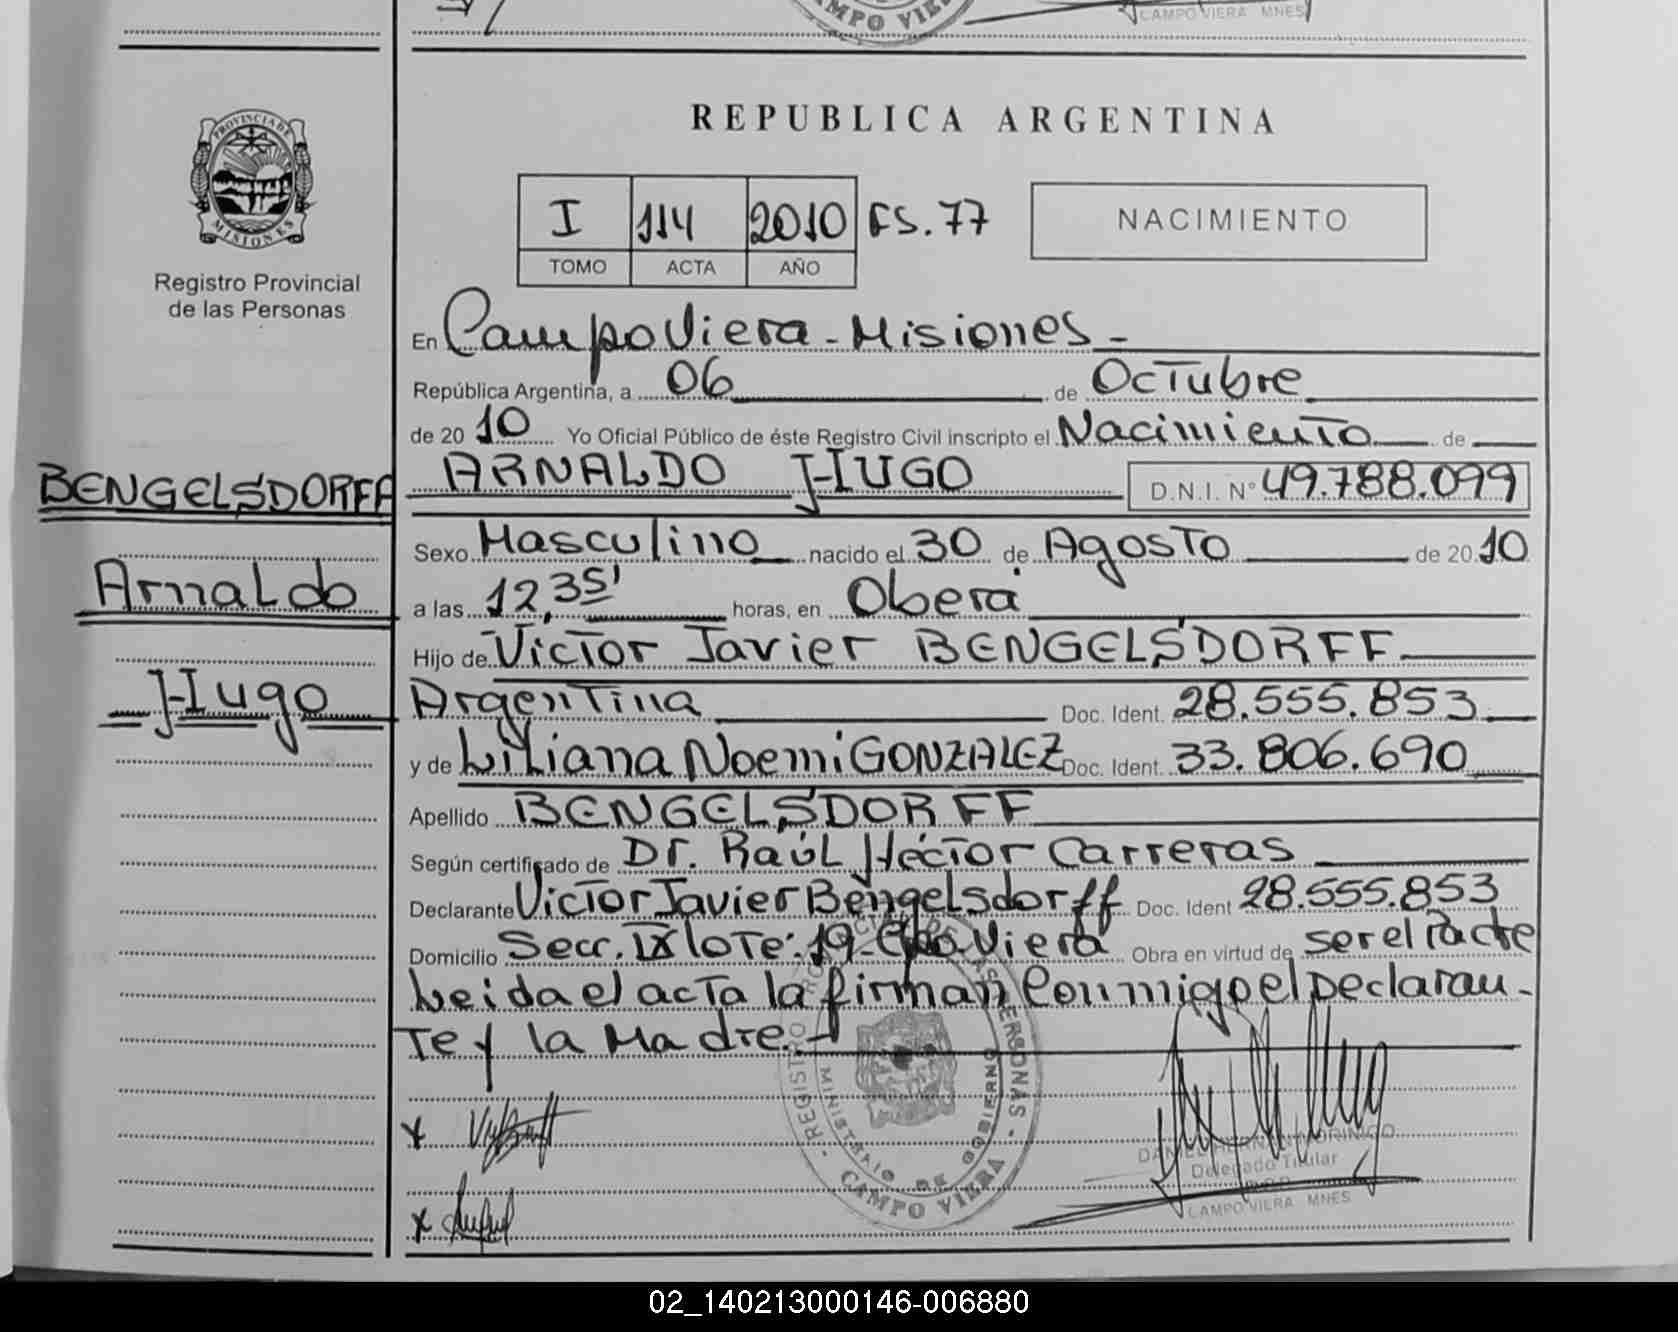 CAMPO VIERA
CAMPO VIERA MNES
PROVINCIA DE
MISIONES
Registro Provincial
de las Personas
BENGELSDORFF
Arnaldo
Hugo
REPUBLICA ARGENTINA
I 114 2010 FS. 77
TOMO ACTA AÑO
NACIMIENTO
En Campo Viera - Misiones -
República Argentina, a 06 de Octubre
de 20 10 Yo Oficial Público de éste Registro Civil inscripto el Nacimiento de
ARNALDO HUGO D.N.I. N° 49.788.099
Sexo Masculino nacido el 30 de Agosto de 20 10
a las 12,35' horas, en Oberá
Hijo de Victor Javier BENGELSDORFF
Argentina Doc. Ident. 28.555.853
y de Liliana Noemi GONZALEZ Doc. Ident. 33.806.690
Apellido BENGELSDORFF
Según certificado de Dr. Raúl Héctor Carreras
Declarante Victor Javier Bengelsdorff Doc. Ident 28.555.853
Domicilio Secc. IX lote: 19 - Cpo Viera Obra en virtud de ser el Padre
Leida el acta la firman Conmigo el Declaran-
te y la Madre.-
REGISTRO PROVINCIAL DE LAS PERSONAS -
MINISTERIO DE GOBIERNO
- CAMPO VIERA -
x
x
DANIEL HERNAN MORINIGO
Delegado Titular
CAMPO VIERA MNES
02_140213000146-006880